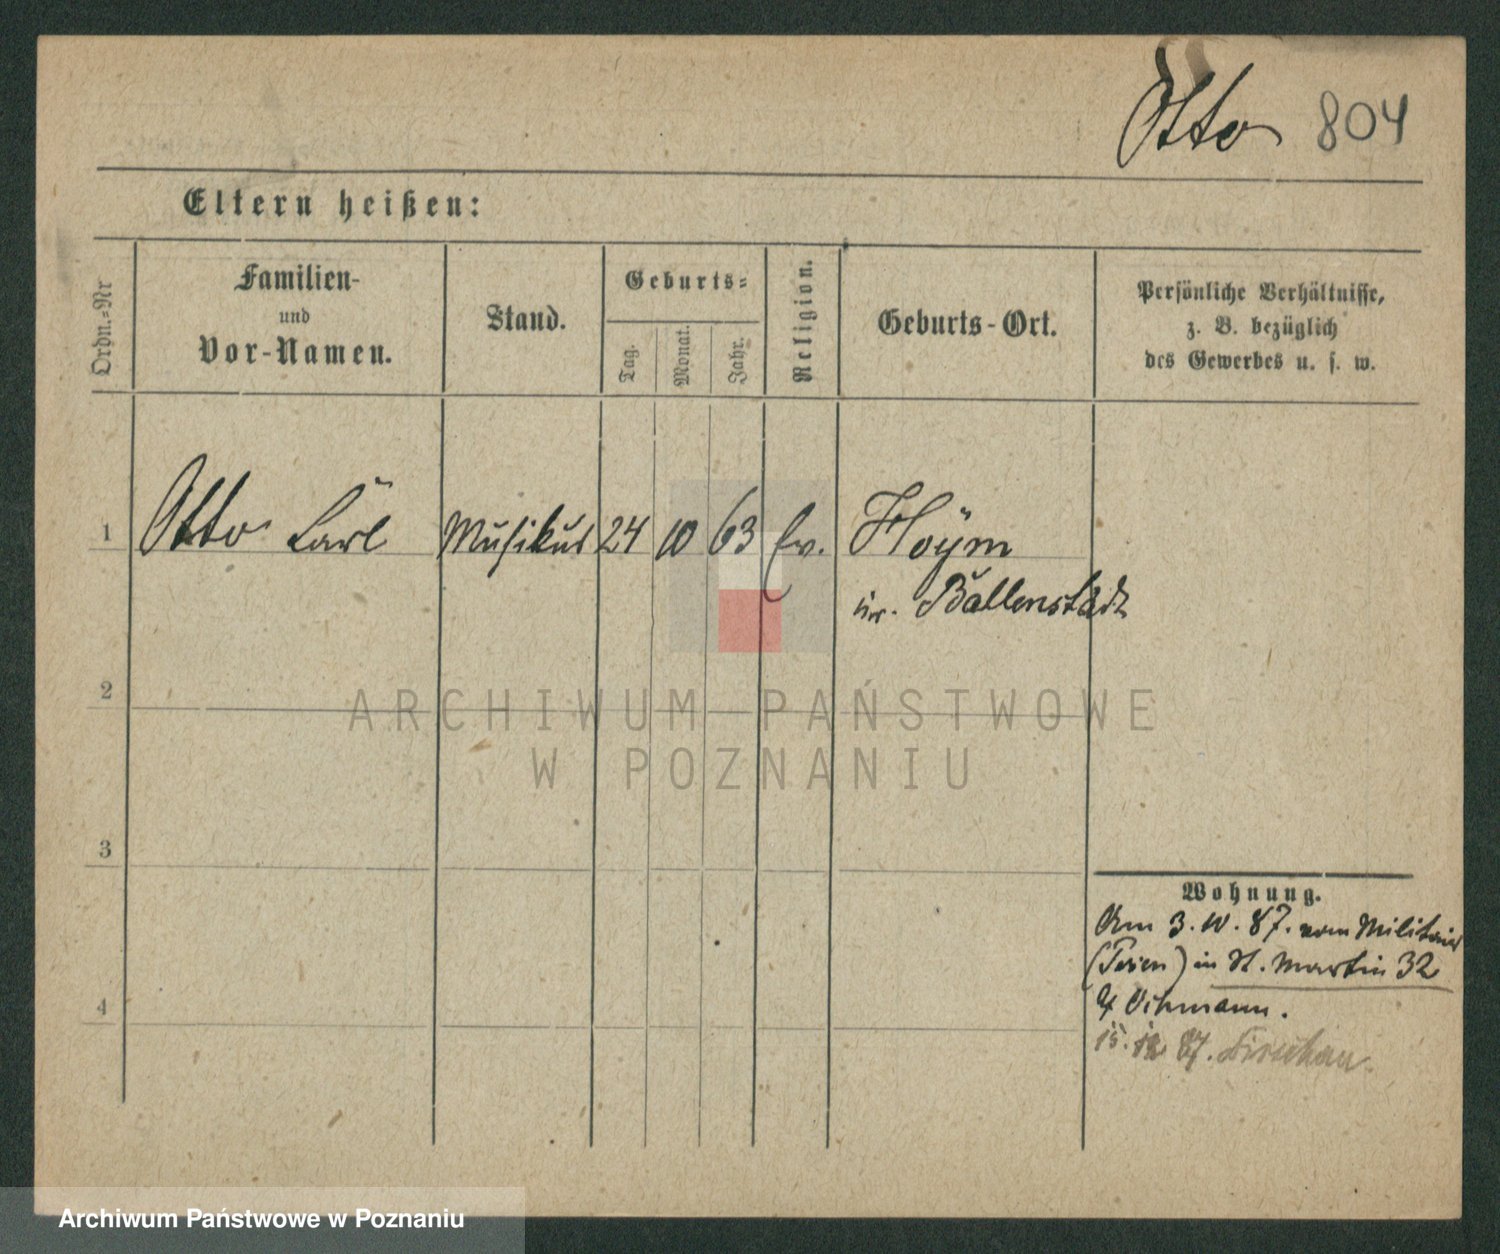 Otto 804
Eltern heißen:
Ordn.-Nr
Familien-
und
Vor-Namen.
Stand.
Geburts-
Tag.
Monat.
Jahr.
Religion.
Geburts-Ort.
Persönliche Verhältnisse,
z. B. bezüglich
des Gewerbes u. s. w.
1 Otto Carl Musikus 24 10 63 Ev. Hoym
Kr. Ballenstädt
2
ARCHIWUM PAŃSTWOWE
W POZNANIU
3
Wohnung.
Am 3.10.87. vom Militair
(Posen) in St. Martin 32
4
15. 12 87. Dirschau.
Archiwum Państwowe w Poznaniu